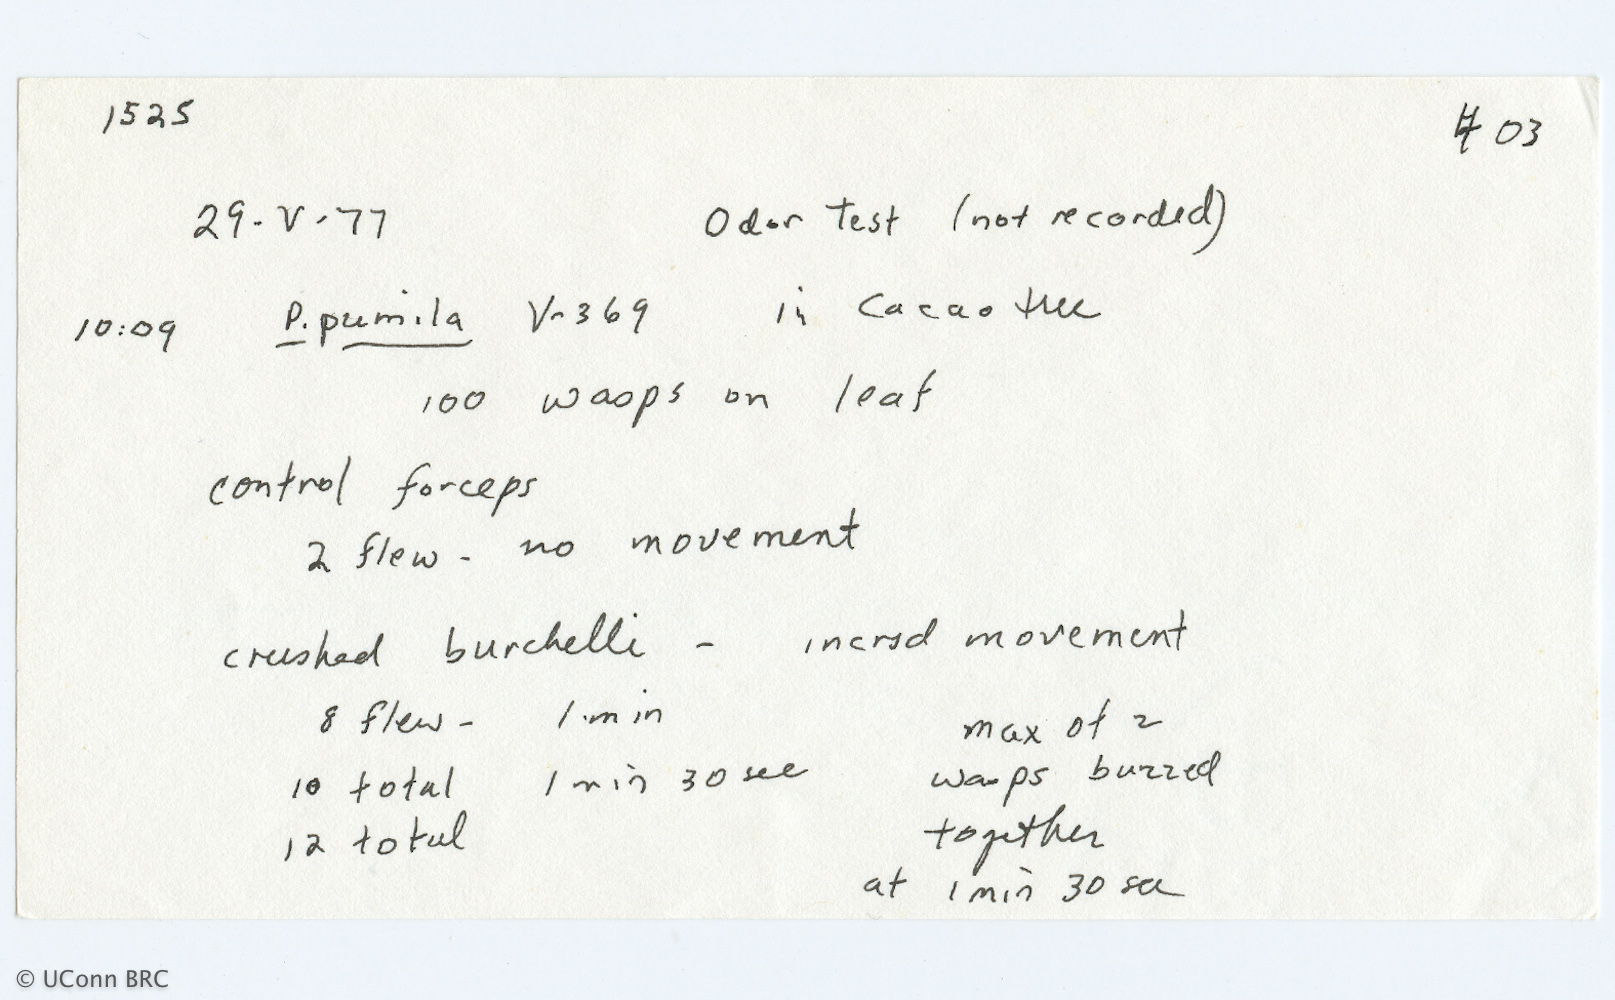 1525 # 03
29-V-77 Odor Test (not recorded)
10:09 P. pumila V-369 in Cacao tree
100 wasps on leaf
control forceps
2 flew - no movement
crushed burchelli - incrsd movement
8 flew - 1 min max of 2
10 total 1 min 30 sec wasps buzzed
12 total together
at 1 min 30 sec
© UConn BRC